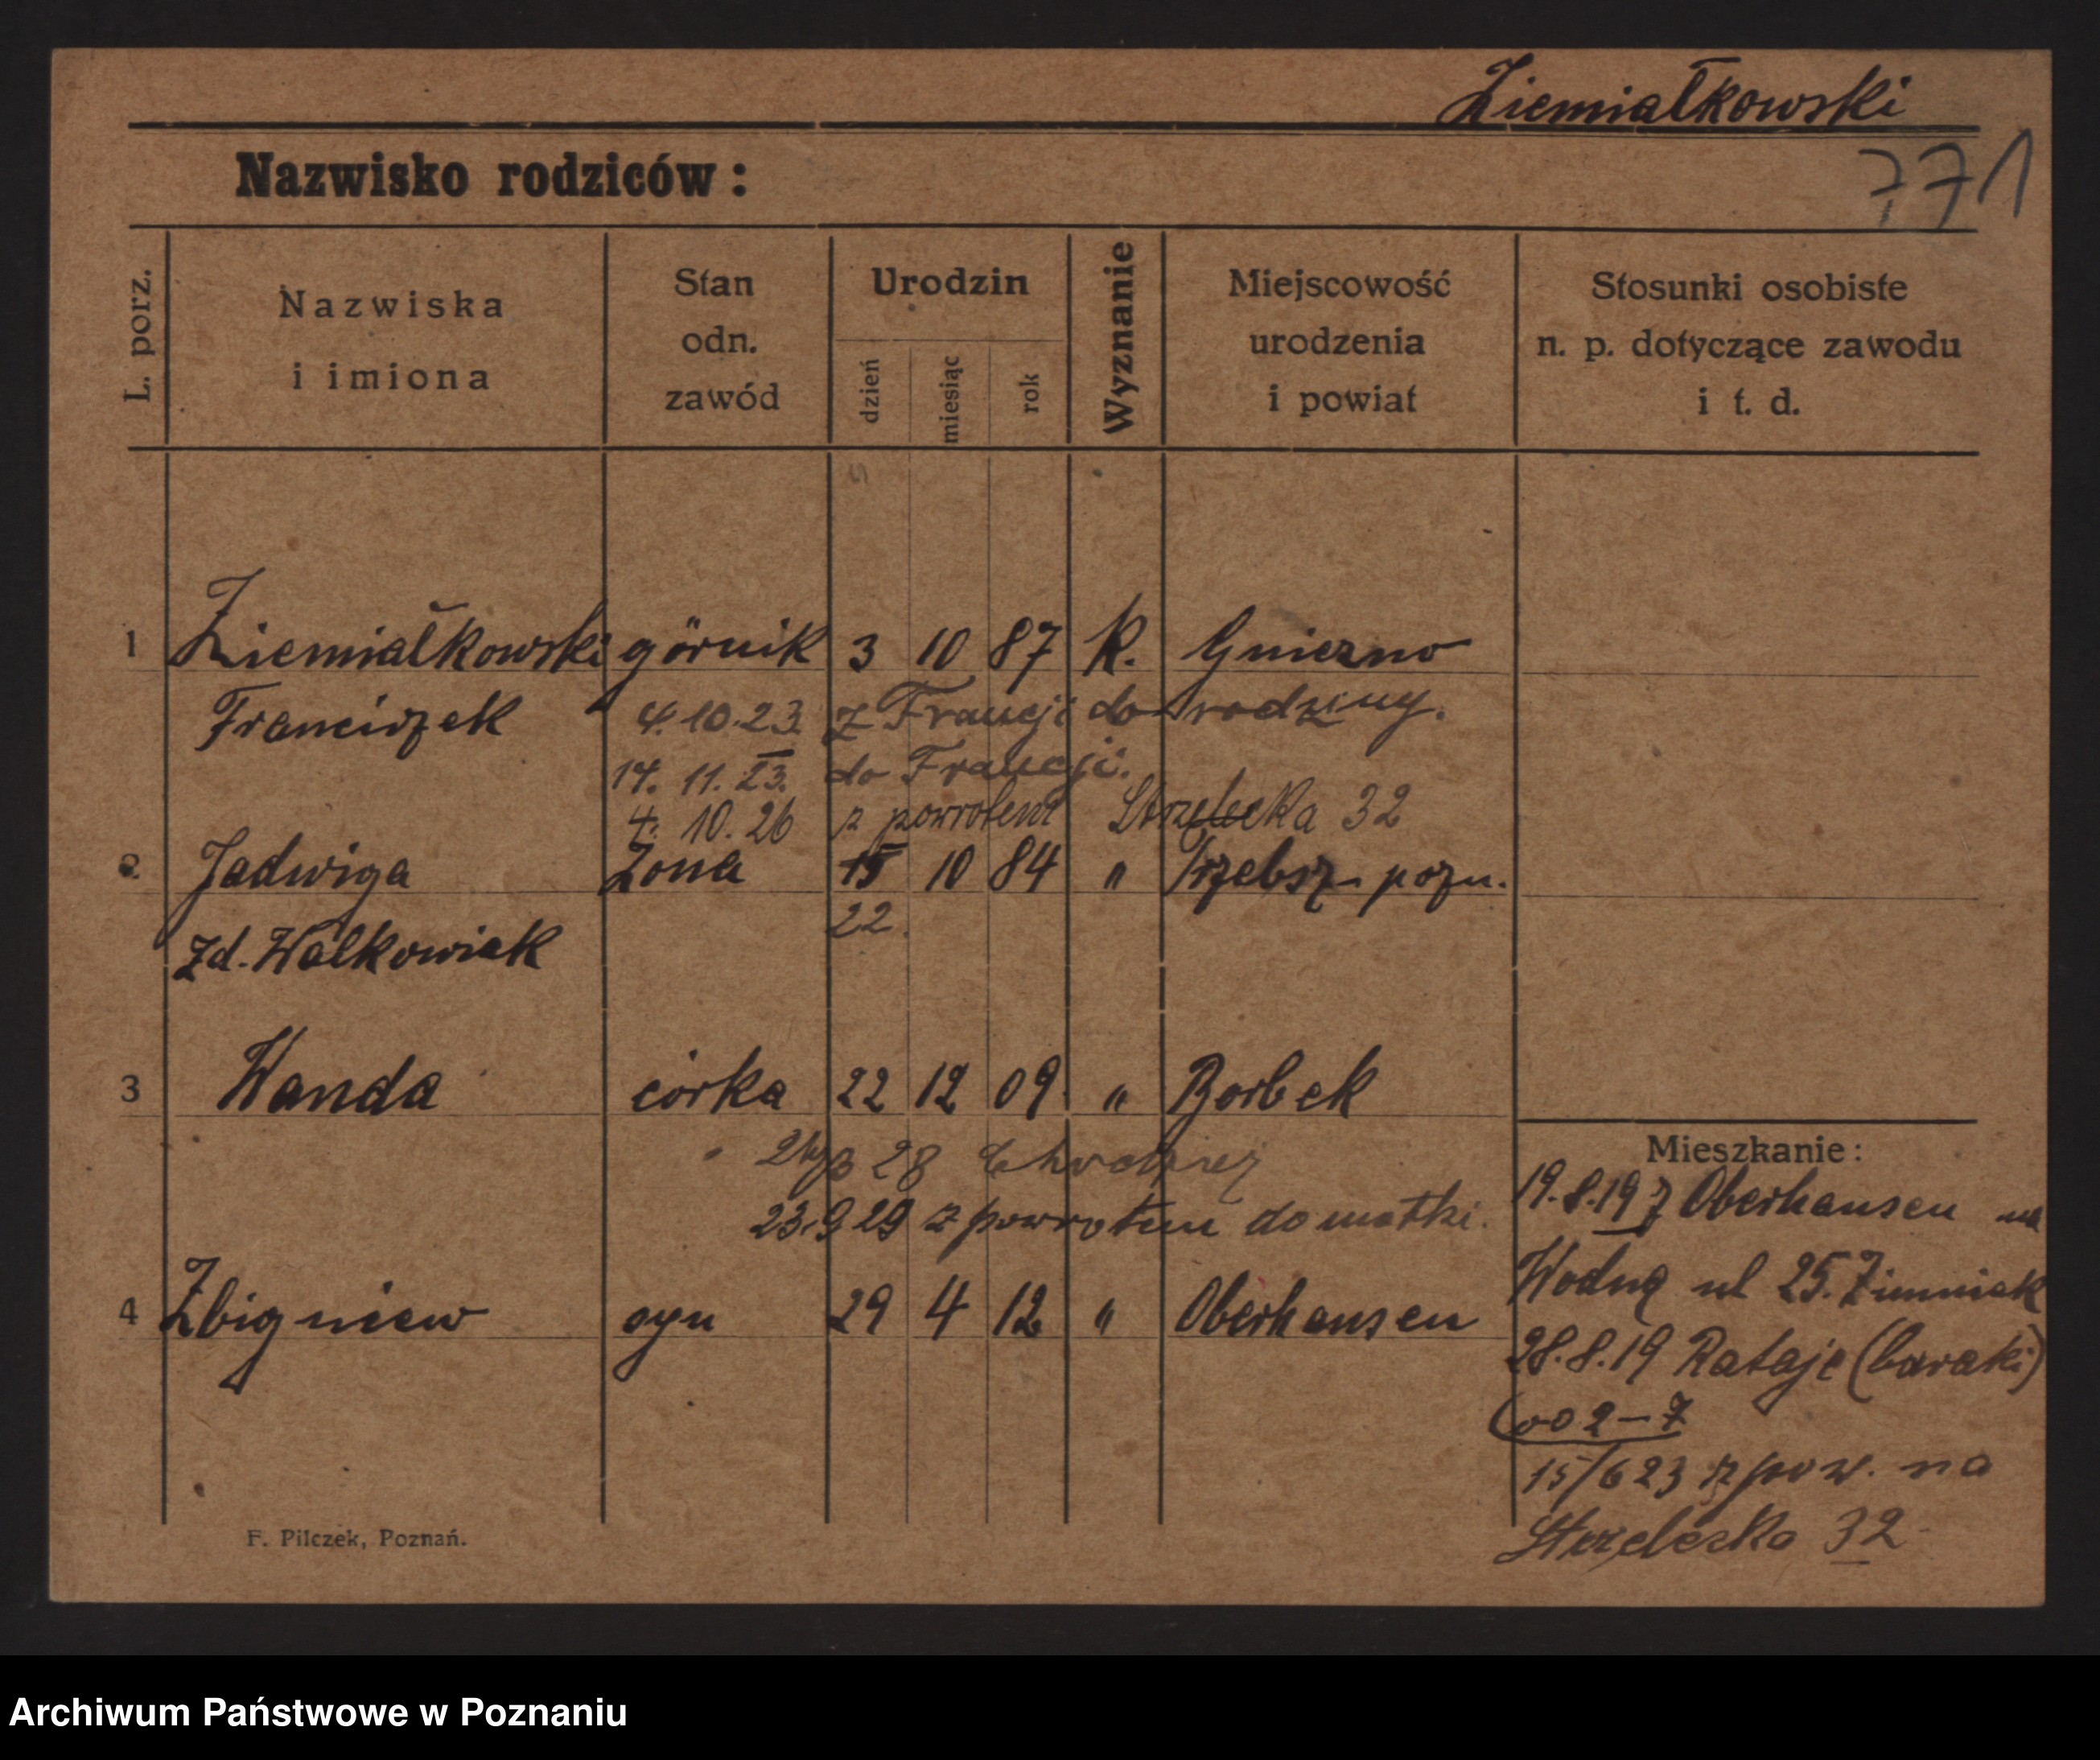 Ziemiałkowski
Nazwisko rodziców :
771
L. porz.
Nazwiska
i imiona
Stan
odn.
zawód
Urodzin
dzień
miesiąc
rok
Wyznanie
Miejscowość
urodzenia
i powiat
Stosunki osobiste
n. p. dotyczące zawodu
i t. d.
1 Ziemiałkowski górnik 3 10 87 k. Gniezno
Franciszek 4.10.23. z Francji do rodziny.
14. 11. 23. do Francji.
4. 10. 26 z powrotem Strzelecka 32
2 Jadwiga żona 15 10 84 " Trzebsz. pozn.
22.
zd. Walkowiak
3 Wanda córka 22 12 09 " Borbek
28
23.9 29 z powrotem do matki.
4 Zbigniew syn 29 4 12 " Oberhausen
Mieszkanie :
19.8.19 z Oberhausen na
Wodną ul 25. Zimniak
28.8.19 Rataje (baraki)
2-7
15/6 23 z pow. na
Strzelecka 32
F. Pilczek, Poznań.
Archiwum Państwowe w Poznaniu